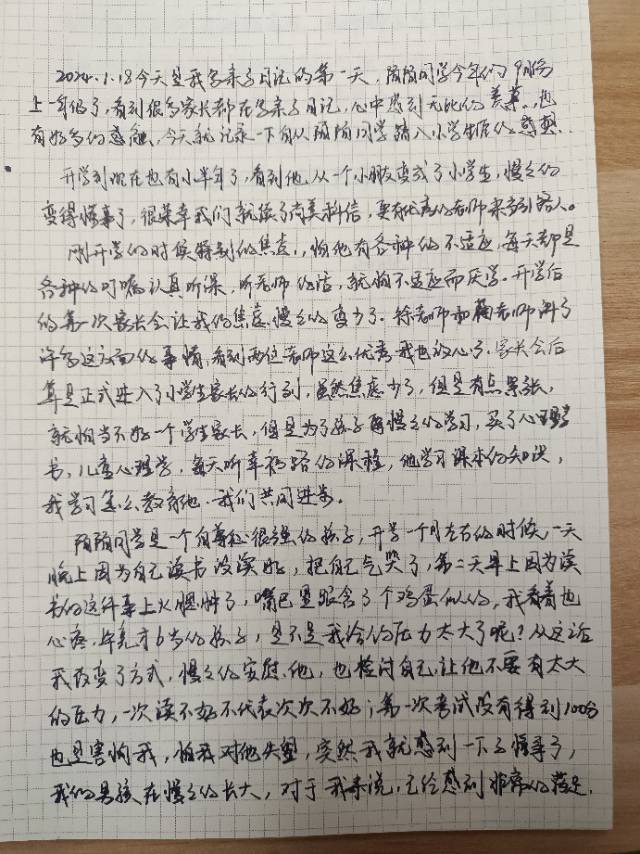 2024.1.18今天是我写亲子日记的第一天，陌陌同学今年的9月份
上一年级了，看到很多家长都在写亲子日记，心中感到无比的羡慕，也
有好多的感触，今天就记录一下自从陌陌同学踏入小学生涯的感想.
开学到现在也有小半年了，看到他从一个小朋友变成了小学生，慢慢的
变得懂事了，很荣幸我们就读了尚美科信，更有优秀的老师来当引路人。
刚开学的时候特别的焦虑，怕他有各种的不适应，每天都是
各种的叮嘱认真听课，听老师的话，就怕不适应而厌学。开学后
的第一次家长会让我的焦虑慢慢的变少了，徐老师和 老师讲了
许多这方面的事情，看到两位老师这么优秀我也放心了.家长会后
算是正式进入了小学生家长的行列，虽然焦虑少了，但是有点紧张，
就怕当不好一个学生家长，但是为了孩子再慢慢的学习，买了心理学
书，儿童心理学，每天听幸福路的课程，他学习课本的知识，
我学习怎么教育他.我们共同进步。
陌陌同学是一个自尊心很强的孩子，开学一个月左右的时候，一天
晚上因为自己读书没读好，把自己气哭了，第二天早上因为读
书的这件事上火 了，嘴巴里跟含了个鸡蛋似的，我看着也
心疼，毕竟才6岁的孩子，是不是我给的压力太大了呢？从这以后
我改变了方式，慢慢的安慰他，也检讨自己，让他不要有太大
的压力，一次读不好不代表次次不好；第一次考试没有得到100分
也是害怕我，怕我对他失望，突然我就感到一下子懂事了，
我们的男孩在慢慢的长大，对于我来说，已经感到非常的满足.